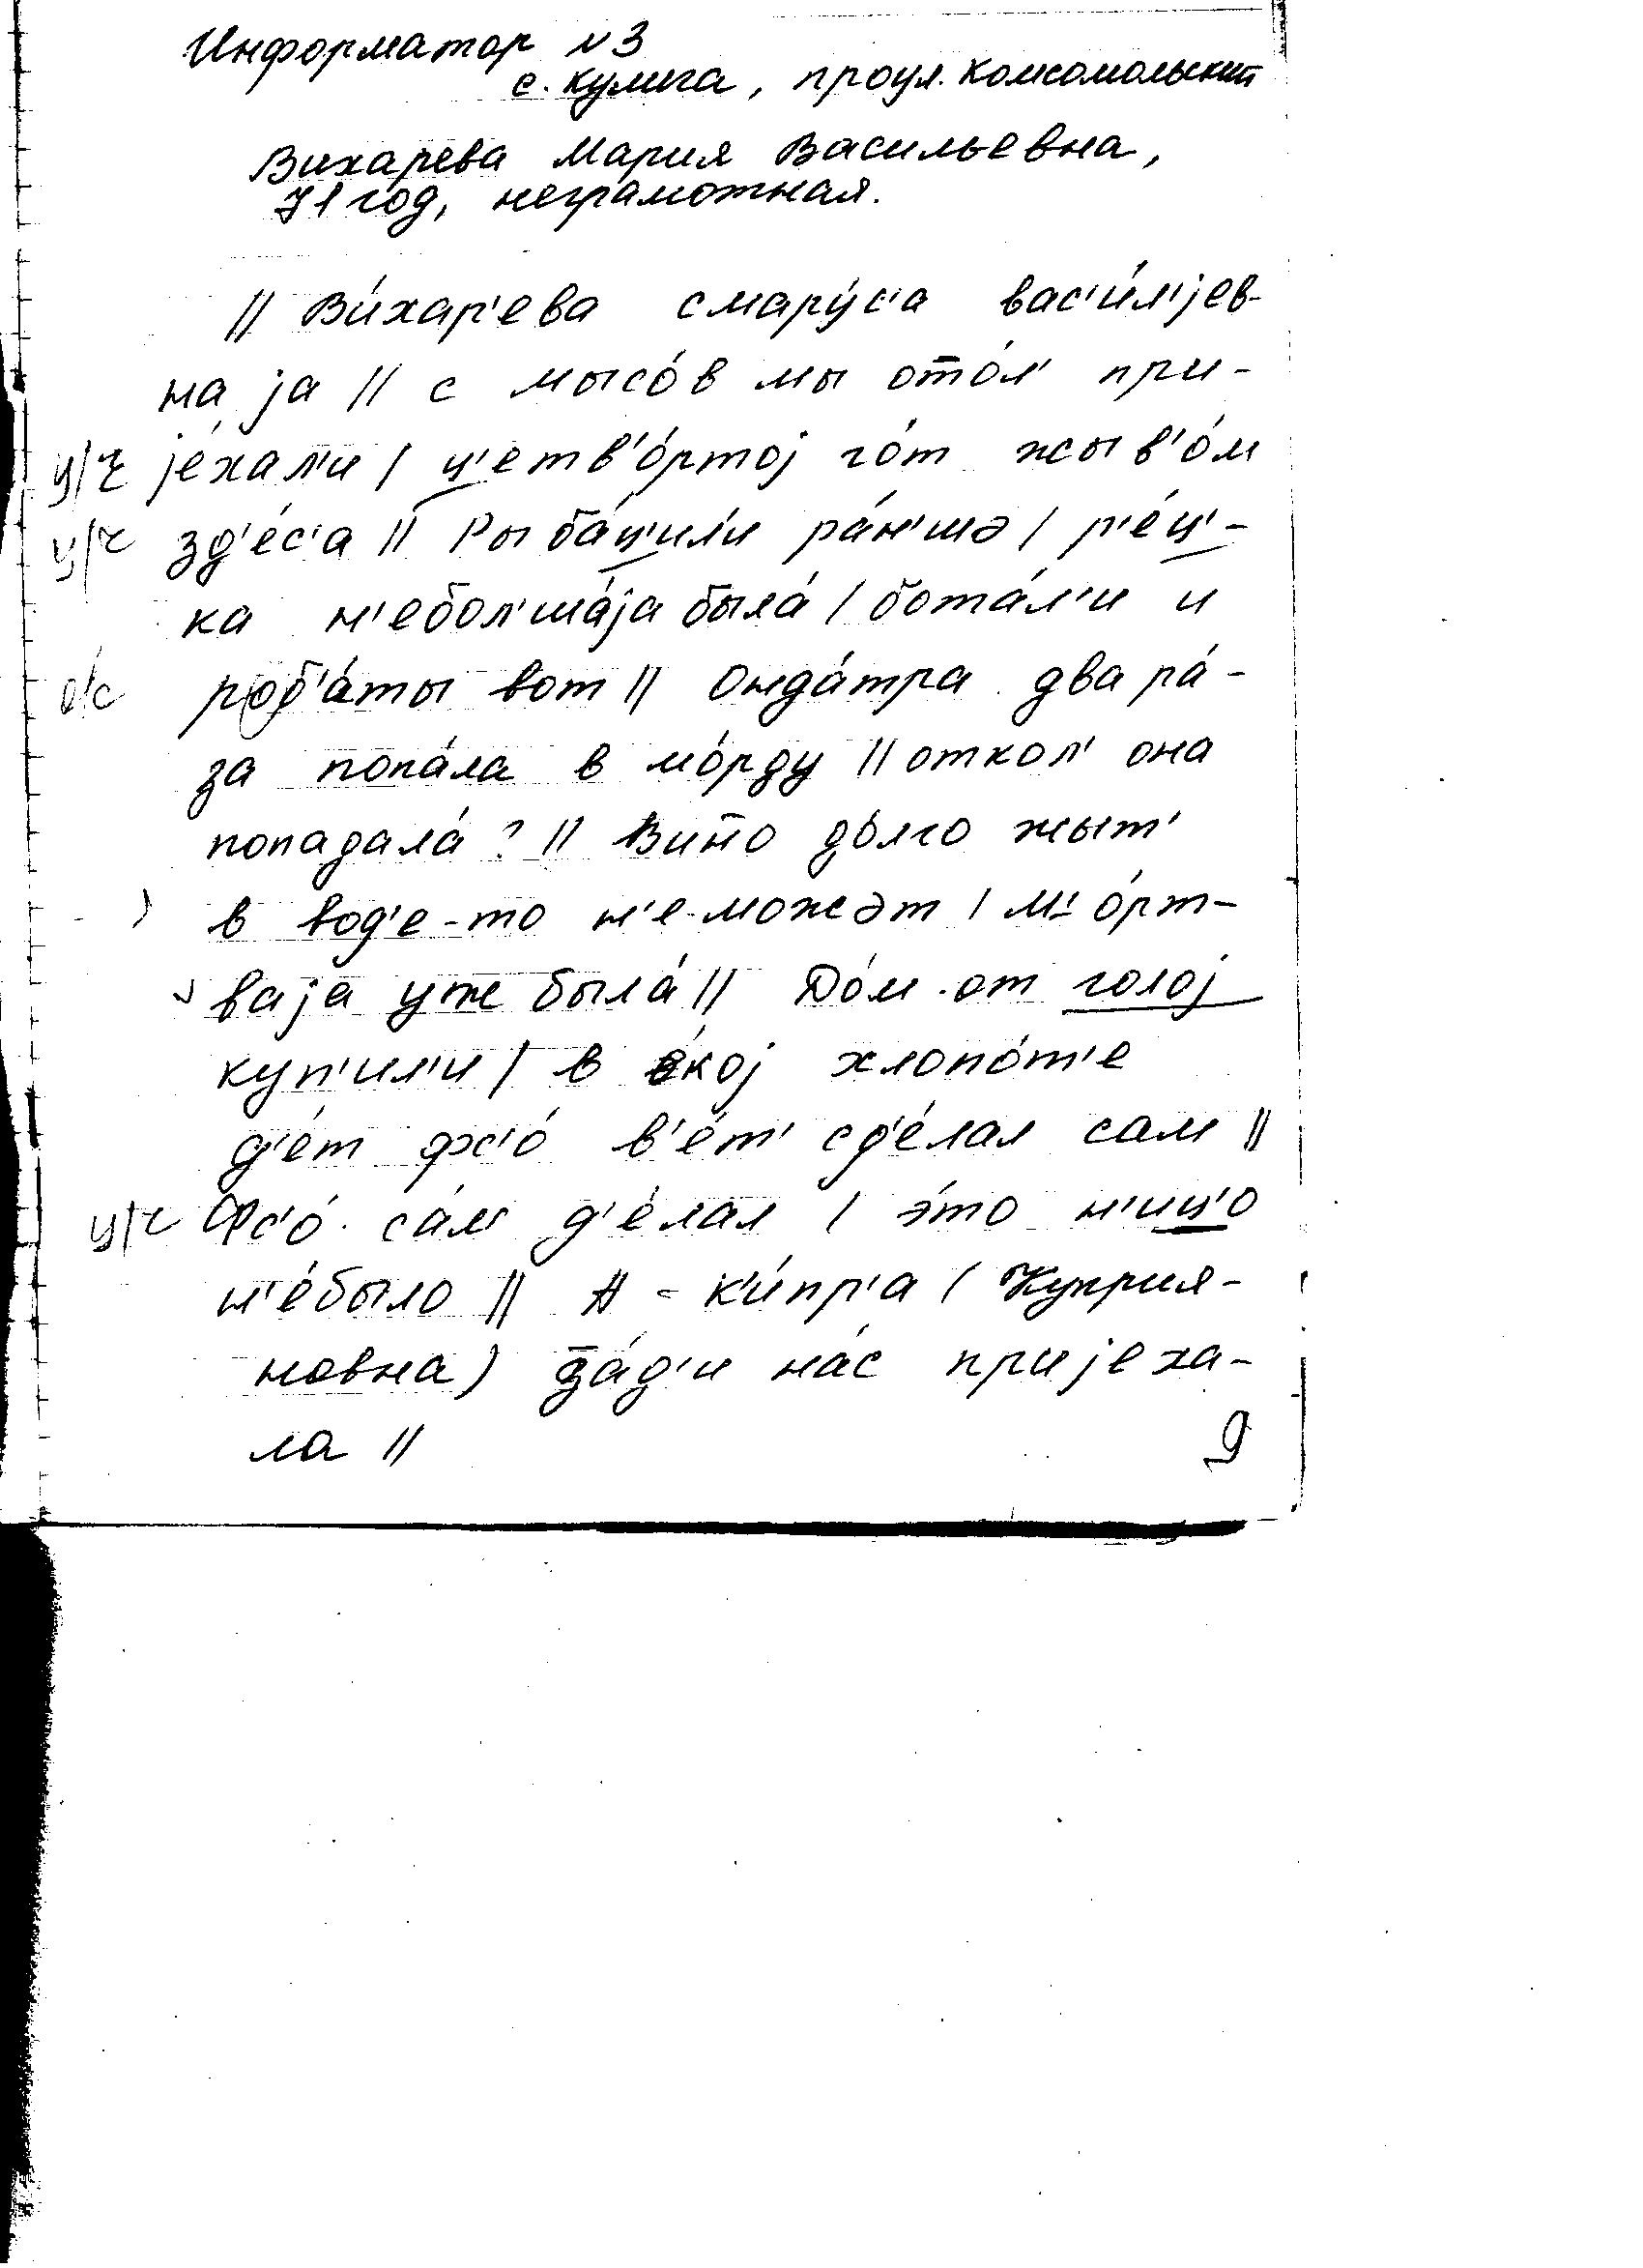 Информатор N3
с. Кулига, проул. Комсомольский
Вихарева Мария Васильевна,
71 год, неграмотная.
|| Ви́хар'ева смару́с'а вас'и́л'jев-
на jа || с мысо́в мы ото́л' при-
ц/ч jе́хал'и | ц'етв'о́ртоj го́т жыв'о́м
ц/ч зд'е́с'а || Рыба́ц'ил'и ра́н'шə | р'е́ц'-
ка н'ебол'ша́jа была́ | бота́л'и и
о/с роб'а́ты вот || Онда́тра два ра́-
за попа́ла в мо́рду || откол' она
попадала́? || Вит'о до́лго жыт'
в вод'е-то н'е можəт | м'о́рт-
ваjа уж была́ || До́м-от голоj
куп'ил'и | в е́коj хлопо́т'е
д'е́т фс'о́ в'е́т' сд'е́лал сам ||
ц/ч Фс'о́ са́м д'е́лал | э́то н'иц'о
н'е́было || А - к'и́пр'а (Куприя-
новна) за́д'и на́с приjеха-
ла ||
9